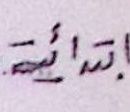 ابتدائية